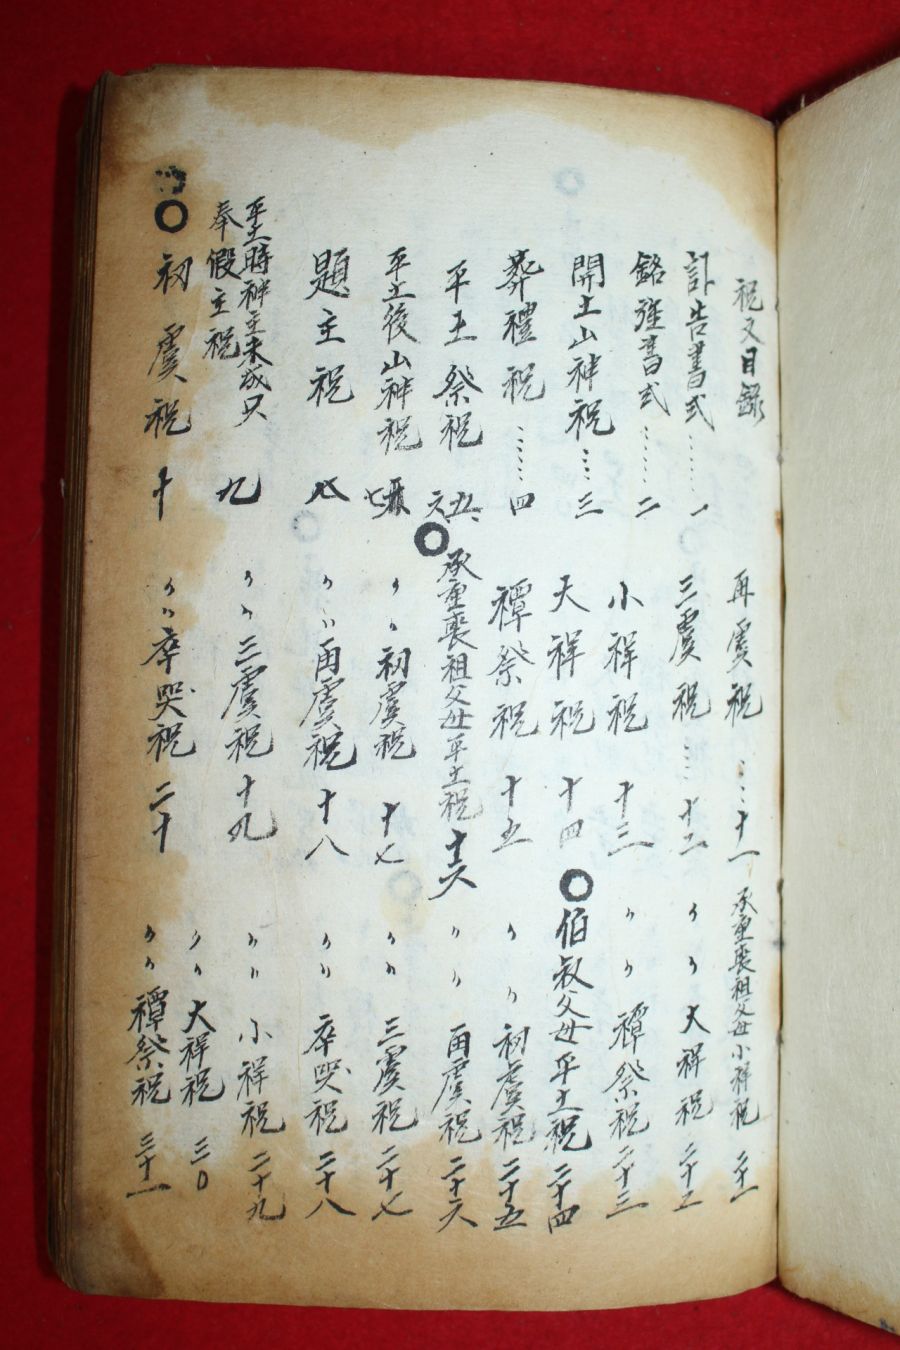 祝文目錄
訃告書式……一
銘旌書式……二
開土山神祝…三
葬禮祝……四
平土祭祝 五、六
平土後山神祝 七
題主祝 八
平土時神主未成只
奉假主祝 九
○初虞祝 十
再虞祝…十一
三虞祝…十二
小祥祝 十三
大祥祝 十四
禫祭祝 十五
○承重喪祖父母平土祝 十六
〃〃初虞祝 十七
〃〃再虞祝 十八
〃〃三虞祝 十九
〃〃卒哭祝 二十
承重喪祖父母小祥祝 二十一
〃〃大祥祝 二十二
〃〃禫祭祝 二十三
○伯叔父母平土祝 二十四
〃〃初虞祝 二十五
〃〃再虞祝 二十六
〃〃三虞祝 二十七
〃〃卒哭祝 二十八
〃〃小祥祝 二十九
〃〃大祥祝 三〇
〃〃禫祭祝 三十一